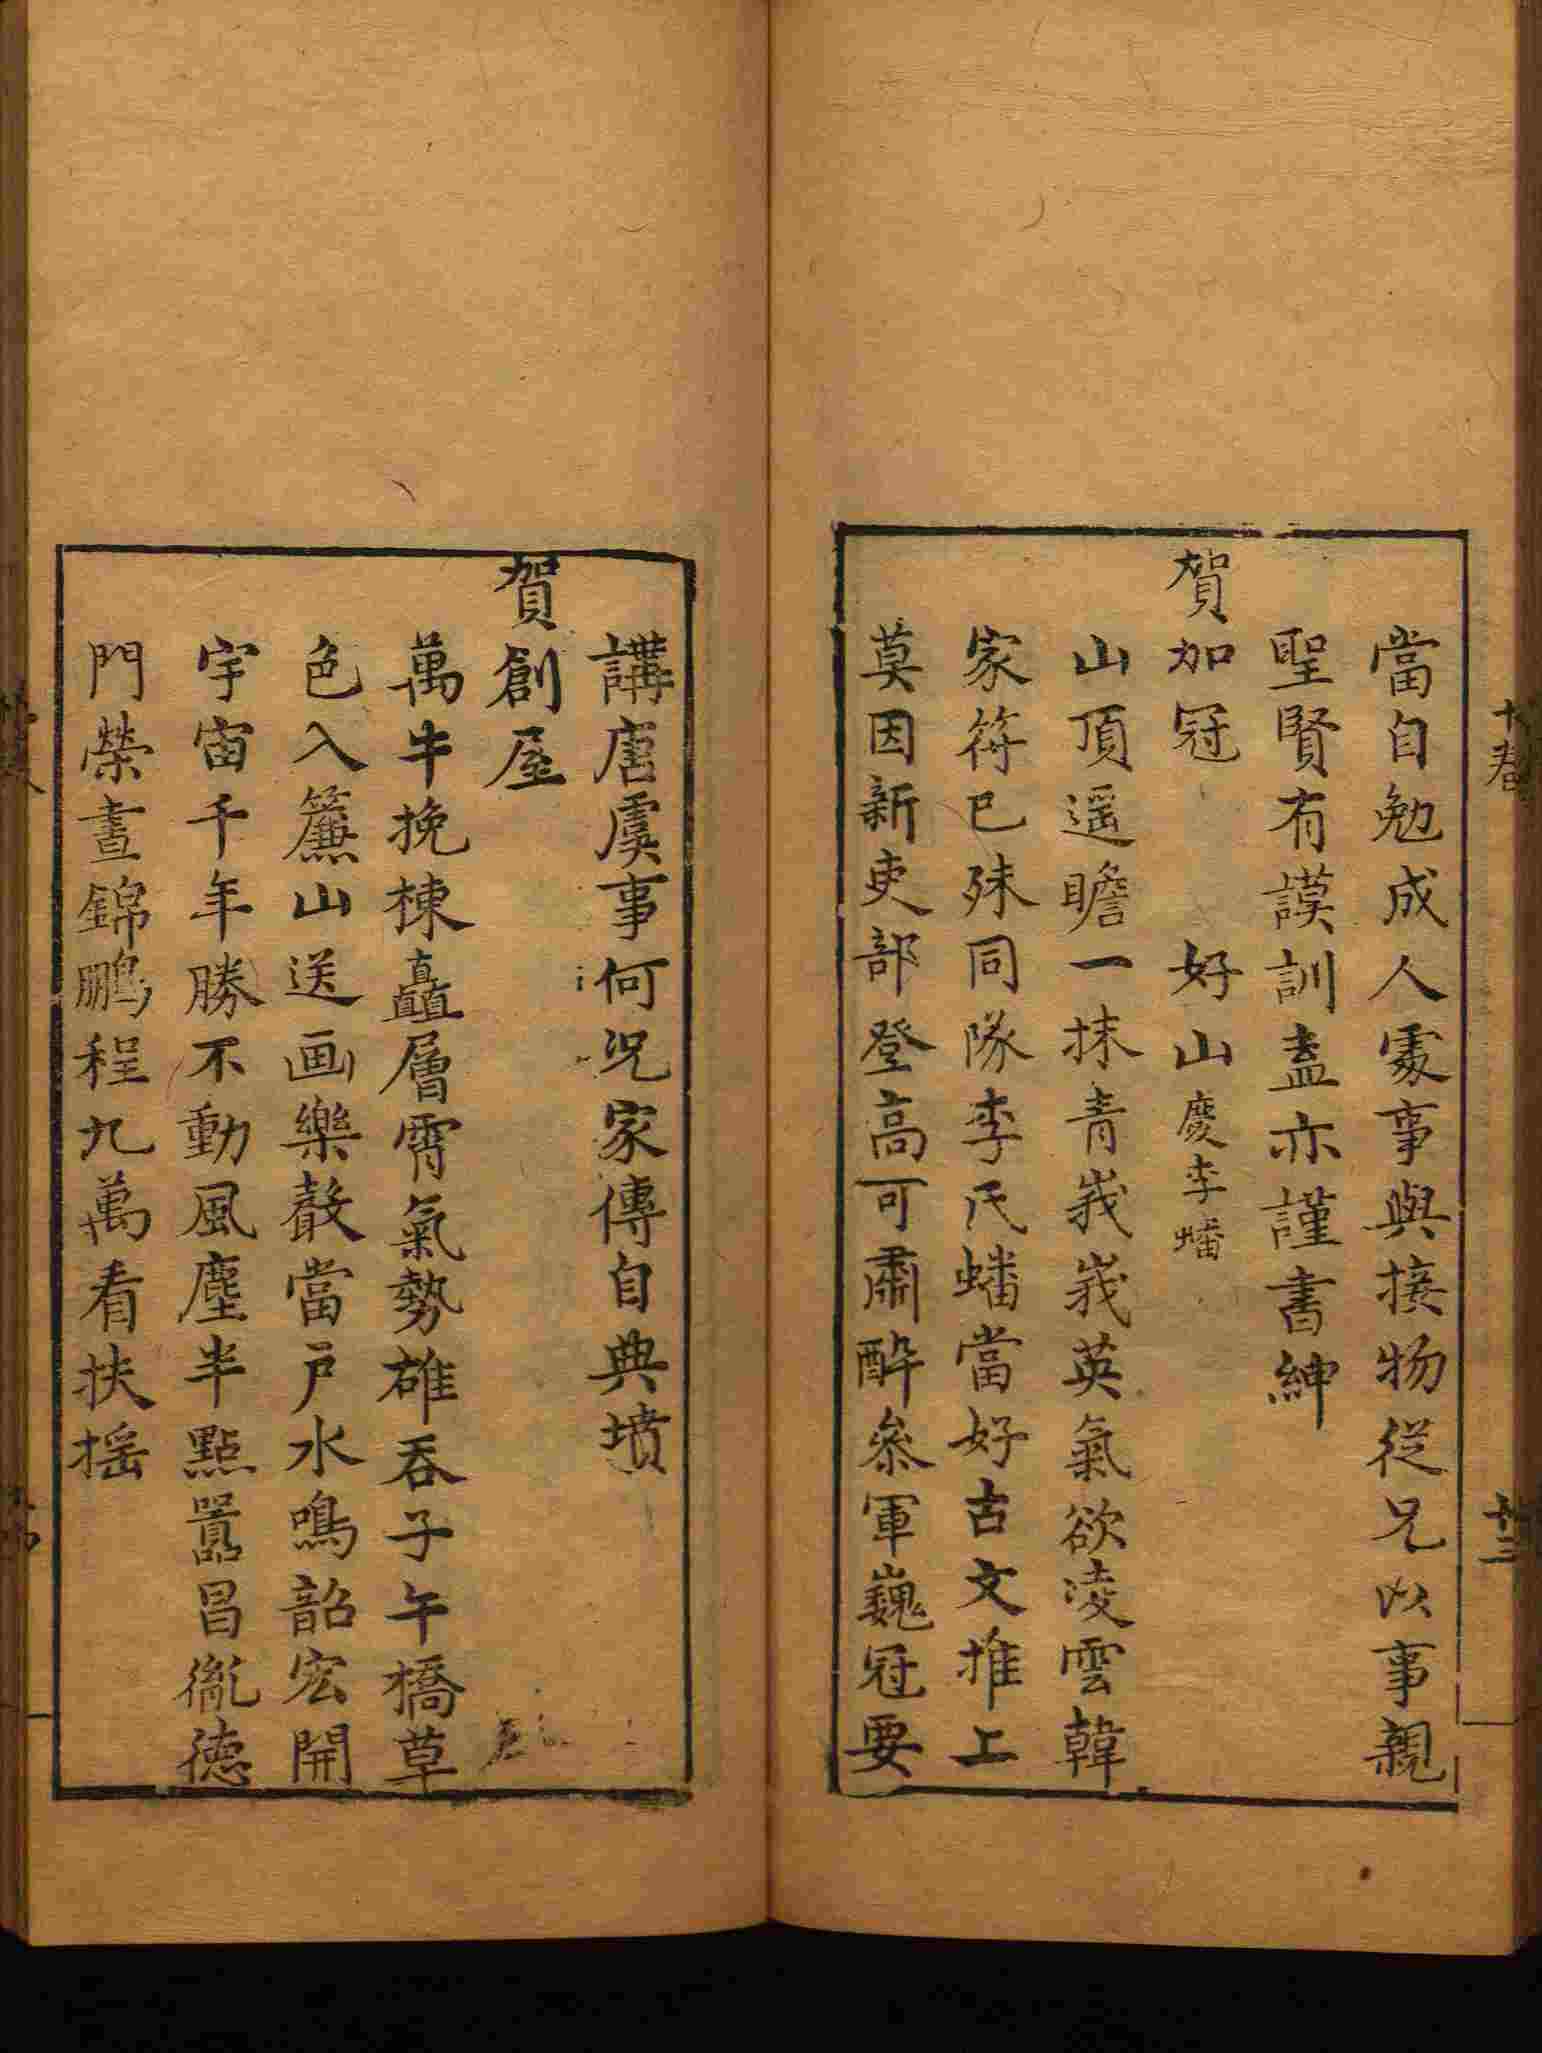 當自勉成人處事與接物從兄以事親
聖賢有謨訓盍亦謹書紳
賀加冠 好山慶李蟠
山頂遥瞻一抹青峩峩英氣欲凌雲韓
家符已殊同隊李氏蟠當好古文推上
莫因新吏部登高可肅酔叅軍巍冠要
講唐虞事何況家傳自典墳
賀創屋
萬牛挽棟矗層霄氣勢雄吞子午橋草
色入簾山送画樂聲當戸水鳴韶宏開
宇宙千年勝不動風塵半點囂昌胤德
門榮晝錦鵬程九萬看扶摇
十卷
十三